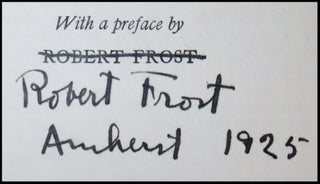 With a preface by
ROBERT FROST
Robert Frost
Amherst 1925